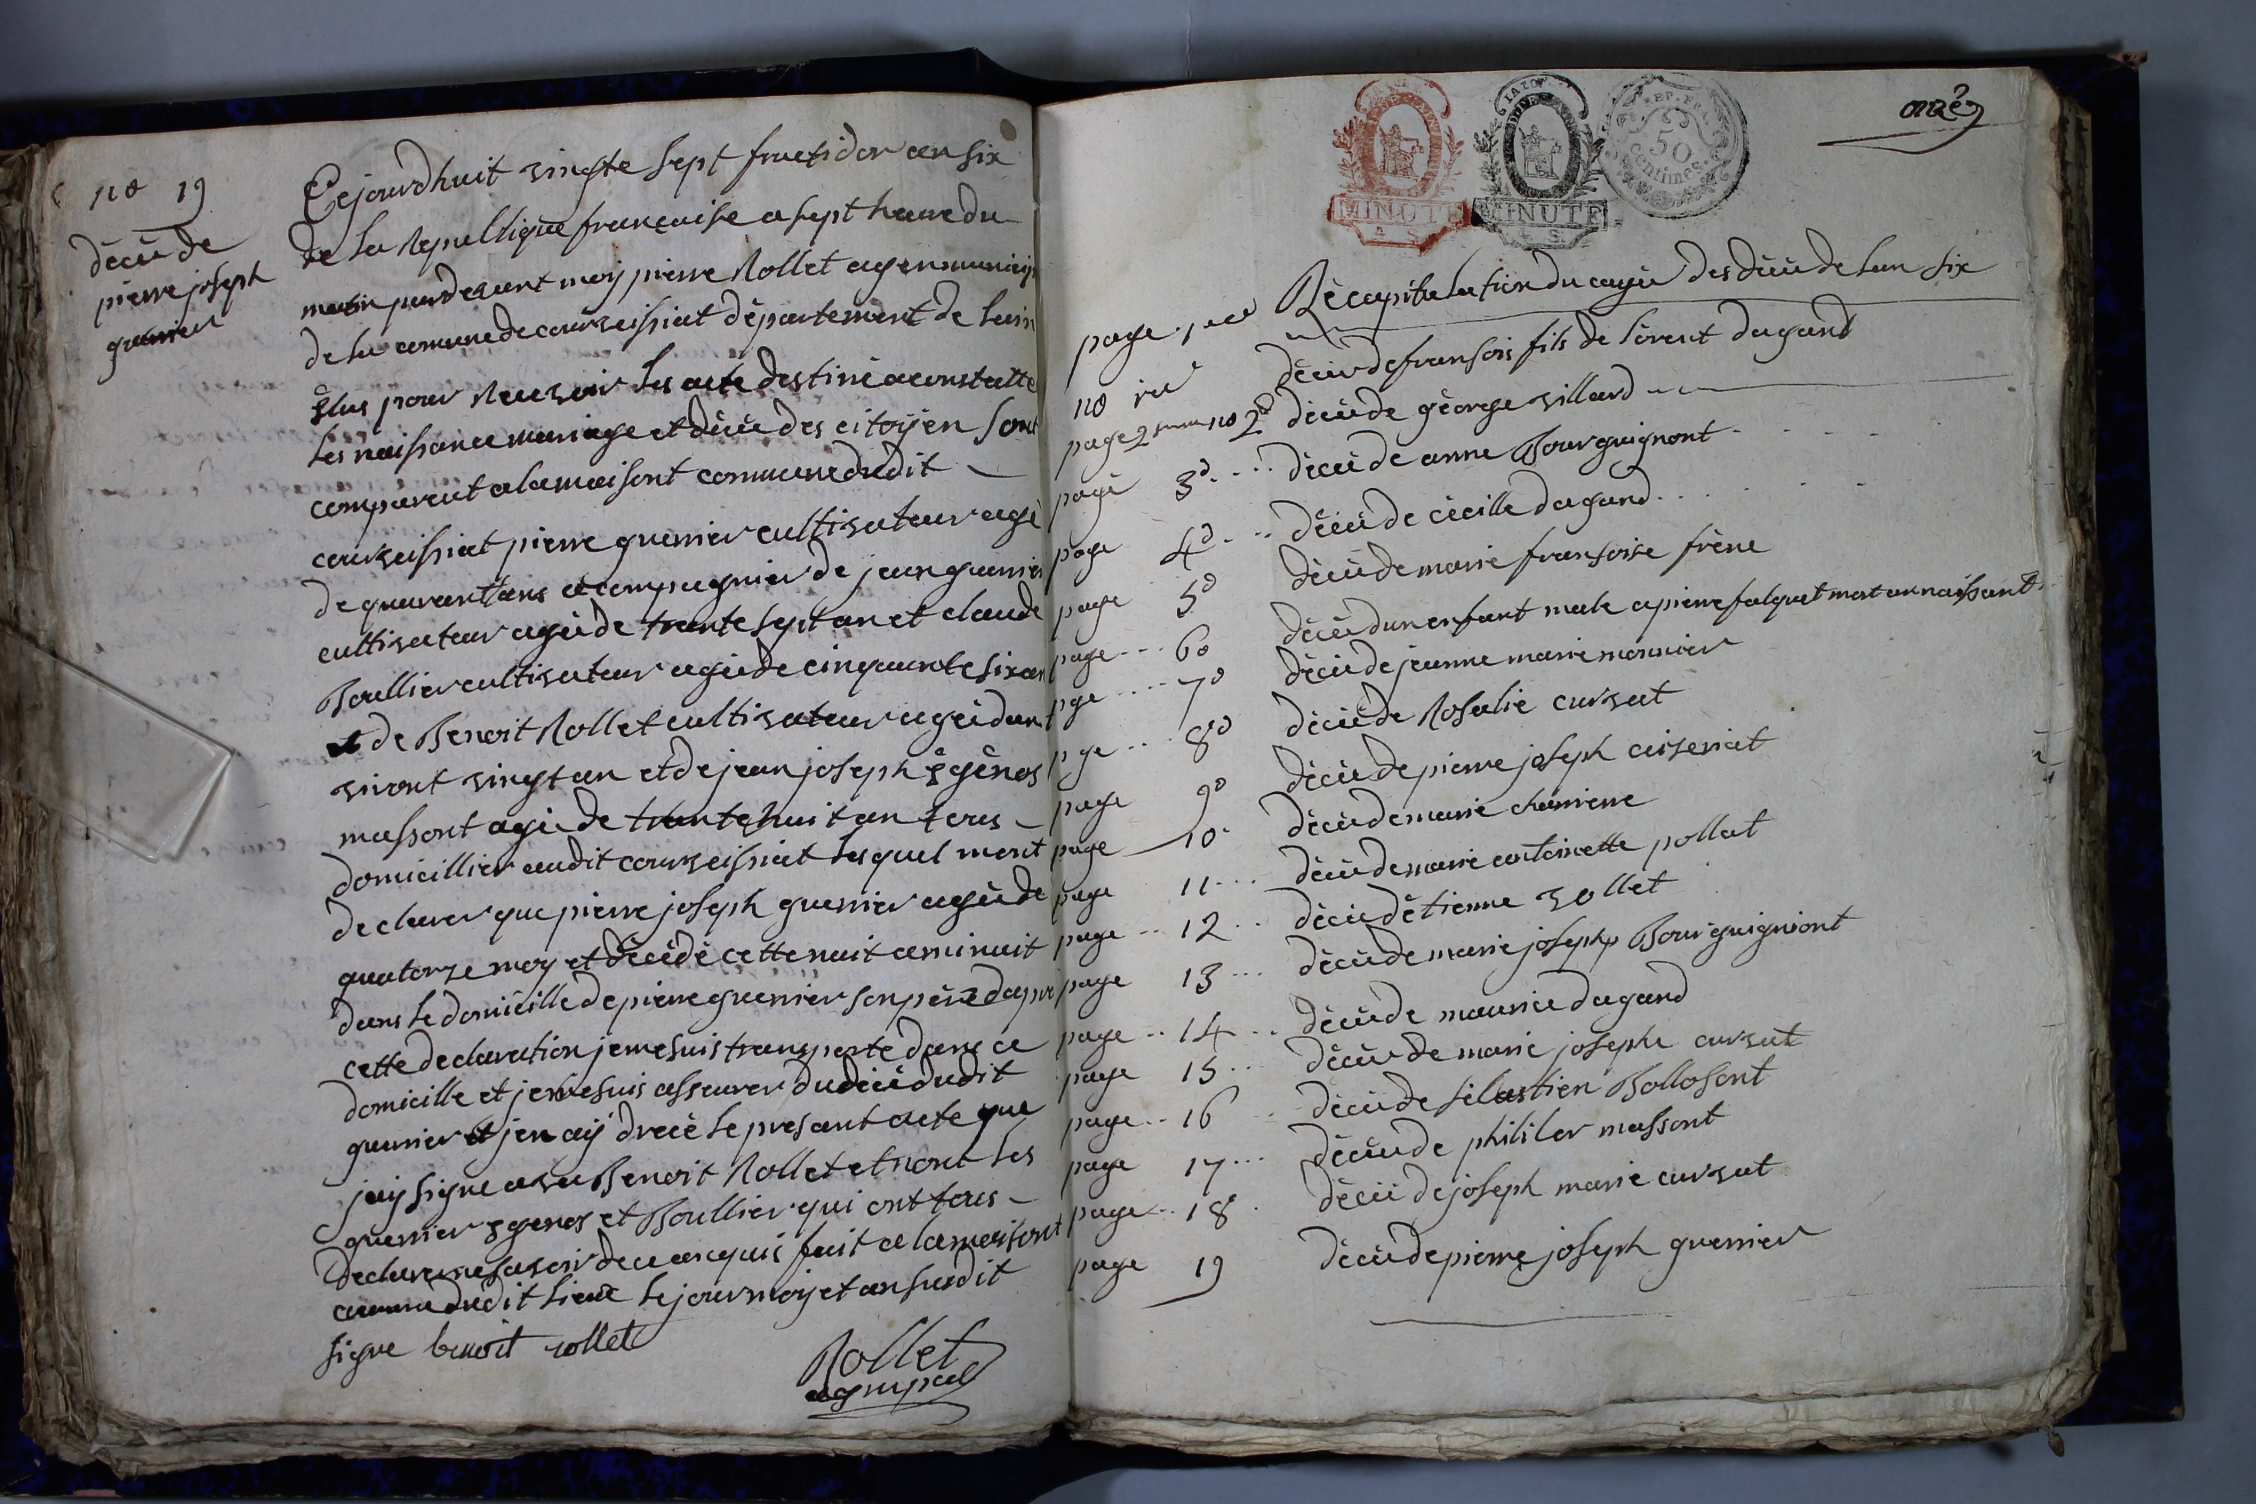 no 19
décéde
pierre joseph
guerrier
Cejourdhuit vingte sept fructidor an six
de la Republique francaise a sept heure du
matin pardevant moy pierre Rollet agen municip
de la comune de courveissiat département de lain
élus pour Recevoir les acte destiné aconstatte
les naissance mariage et décé des citoyèn sont
compareut alamaisont commune dudit
courveissiat pierre guerrier cultivateur agé
de quarant ans acompagnier de jean guerrier
cultivateur agé de trante sept an et claude
Boullier cultivateur agé de cinquante six an
et de Benoit Rollet cultivateur agé dan
viront vingt an et de jean joseph
massont agé de trantehuit an tous
domicillier audit courveissiat lesquel mont
declarer que pierre joseph guerrier agé de
quatorze moy et décédé cette nuit aminuit
dans le domicille de pierre guerrier son père dapré
cette declaration jemesuis transporté dans ce
domicille et jemesuis asseurer dudécé dudit
guerrier et jen ay drecé le presant acte que
jay signe avec Benoit Rollet et nont les
guerrier et Boullier qui ont tous
declare ne savoir de ce anquis fait a lamaisont
comune dudit lieue le jour moy et an susdit
signe benoit rollet
Rollet
agm pal
MINUTE
MINUTE
REP. FRA
50
centimes
onze
page 1
Récapitulation du cayé des décé de lan six
no
décé de fransois fils de lorent dagand
page 2 no 2d décé de géorge villard
page 3d décé de anne Bourguignont
page 4d décé de cécille dagand
page 5d décé de marie fransoise frène
page 6d décé dun enfant male a pierre falquet mort annaissant
pge 7d décé de jeanne marie monnier
pge 8d décé de Rosalie curvat
page 9d décé de pierre joseph
page 10 décé de marie
page 11 décé de marie antoinette pollat
page 12 décé détienne vollet
page 13 décé de marie joseph Bourguigniont
page 14 décé de maurice dagand
page 15 décé de marie josephe curvat
page 16 décé de sebastien Bollosont
page 17 décé de philiber massont
page 18 décé de joseph marie curvat
page 19 décé de pierre joseph guerrier